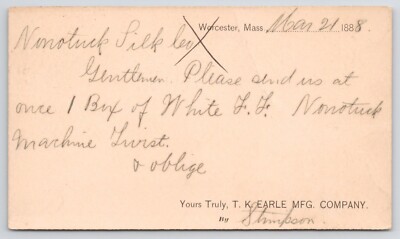 Worcester, Mass Mar 21 1888.
Nonotuck Silk Co
Gentlemen. Please send us at
once 1 Box of White F.F. Nonotuck
Machine Twist.
& oblige
Yours Truly, T. K. EARLE MFG. COMPANY.
By Stimpson.